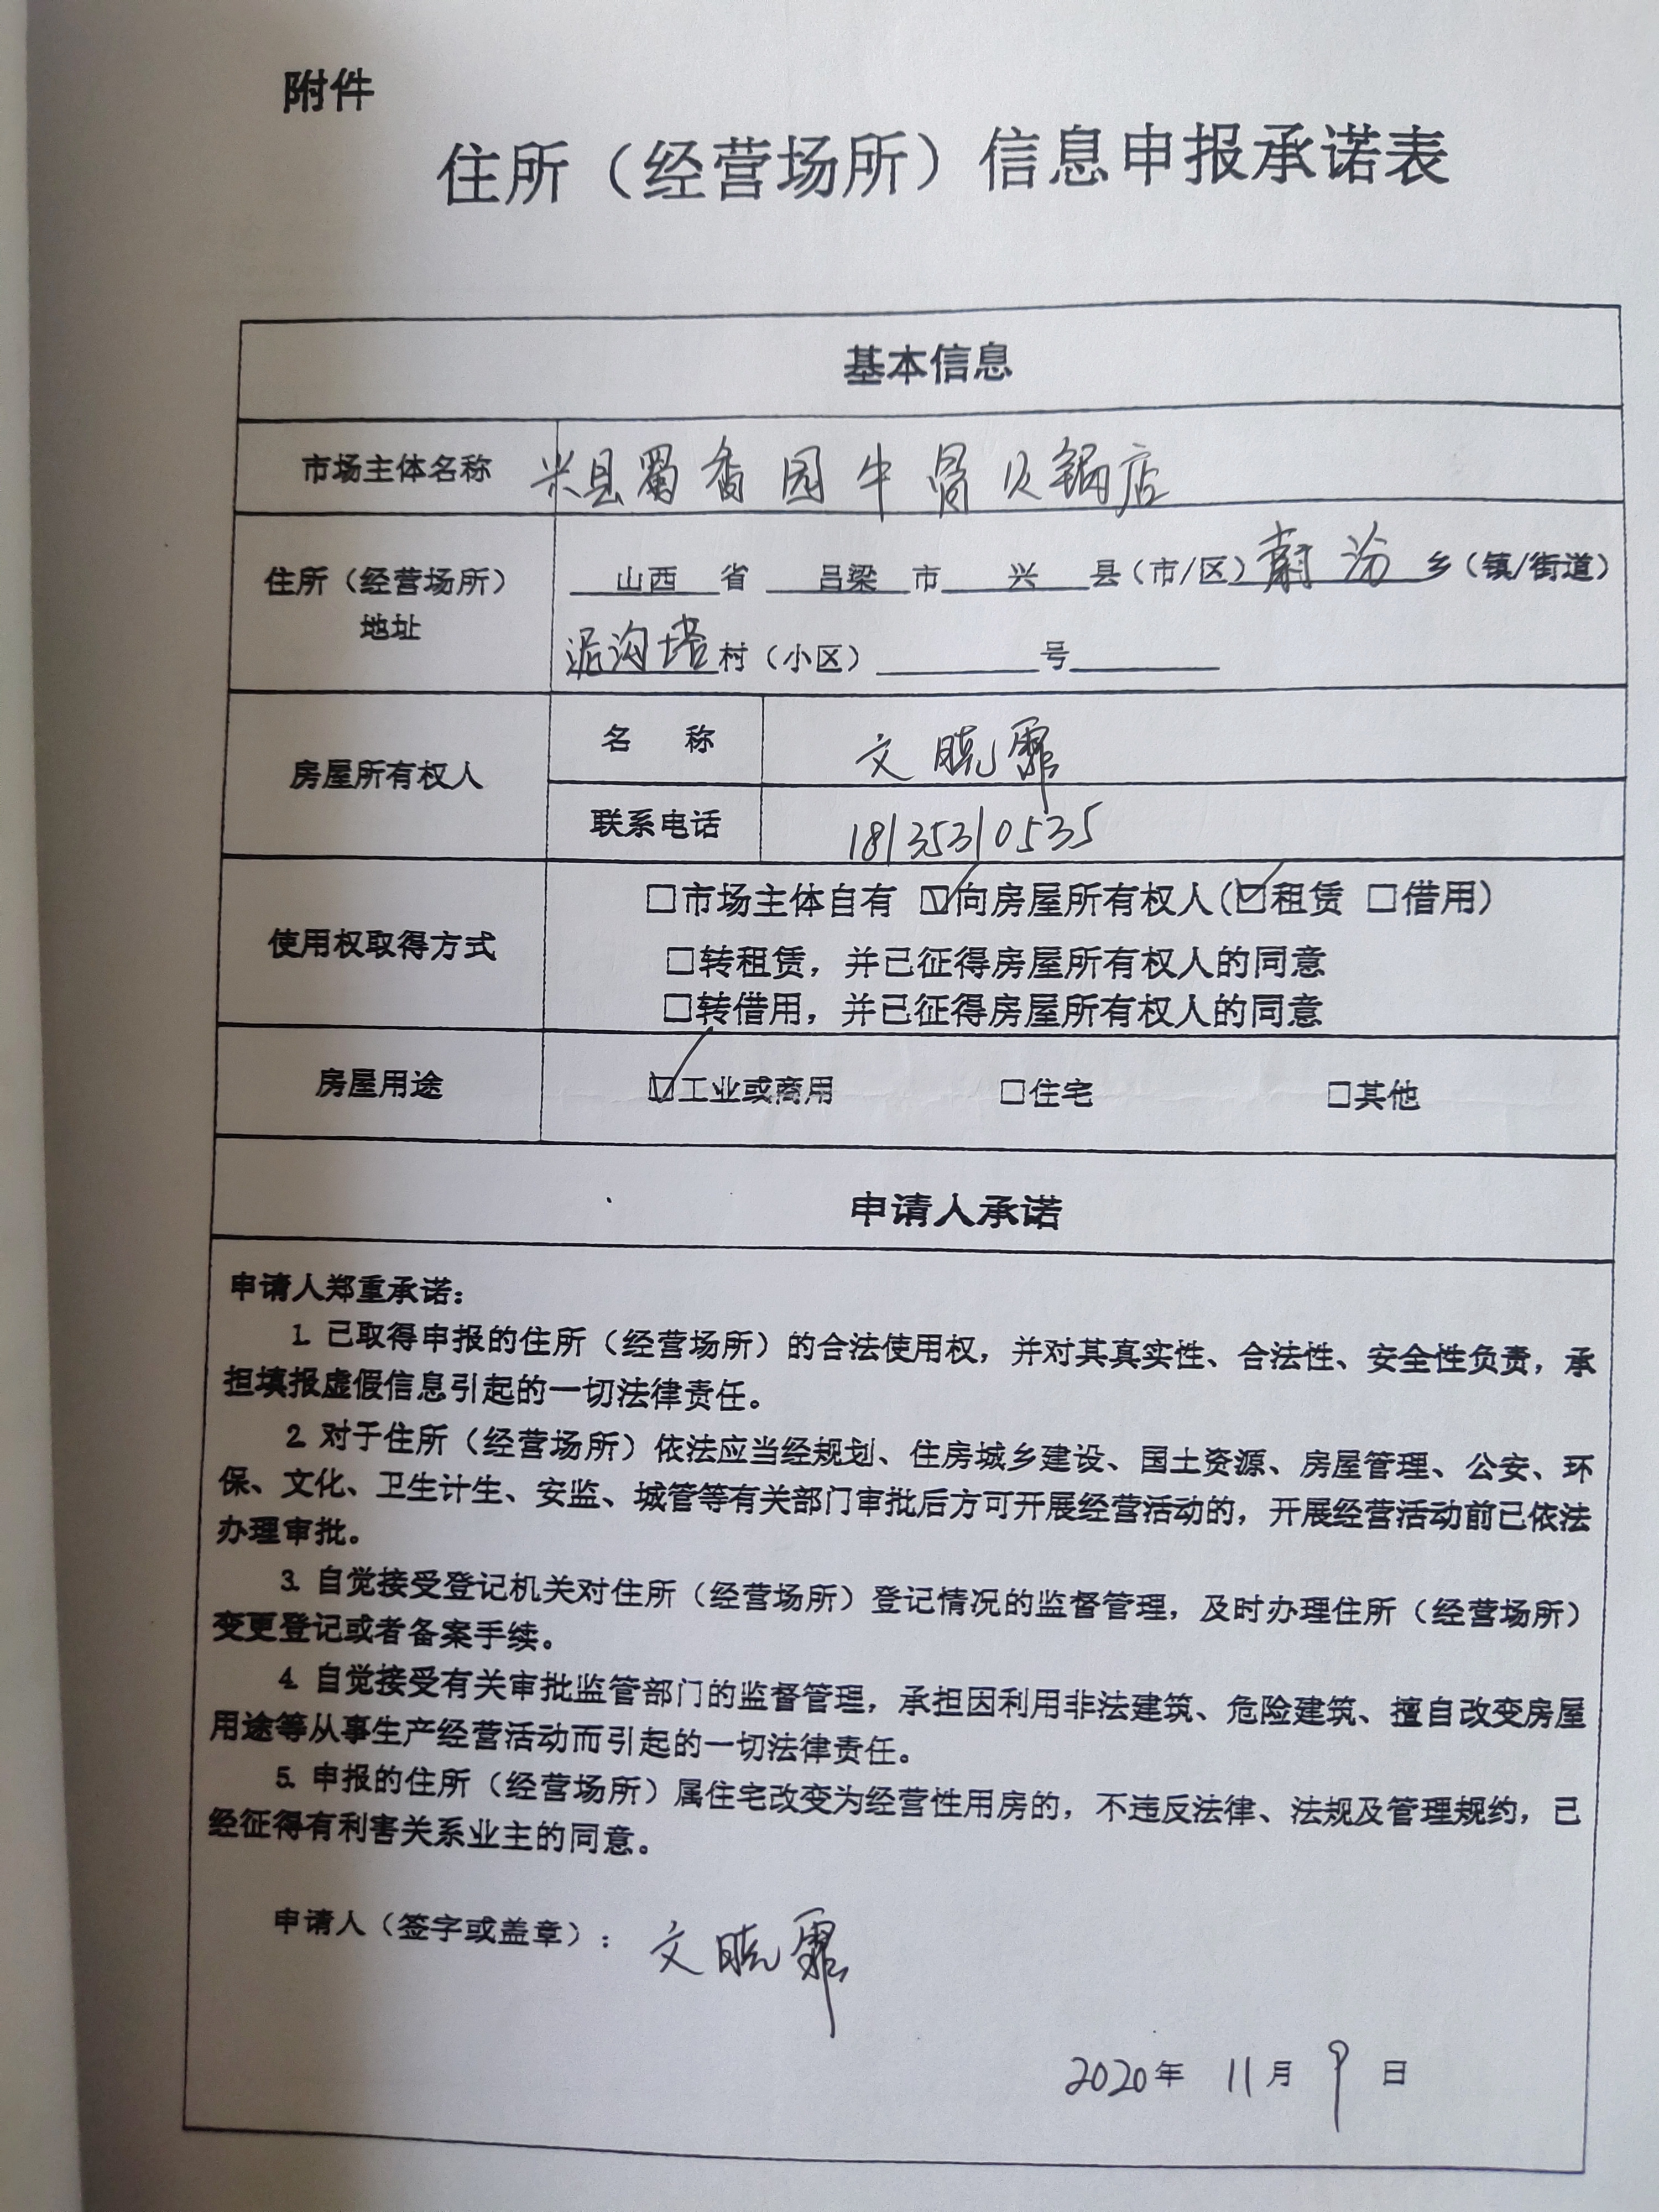 附件
住所（经营场所）信息申报承诺表
基本信息
市场主体名称 兴县蜀香园牛骨火锅店
住所（经营场所）地址 山西 省 吕梁 市 兴 县（市/区）蔚汾 乡（镇/街道）
泥沟塔村（小区） 号
房屋所有权人
名 称 文晓霏
联系电话 18135310535
使用权取得方式
□市场主体自有 ☑向房屋所有权人（☑租赁 □借用）
□转租赁，并已征得房屋所有权人的同意
□转借用，并已征得房屋所有权人的同意
房屋用途 ☑工业或商用 □住宅 □其他
申请人承诺
申请人郑重承诺：
1. 已取得申报的住所（经营场所）的合法使用权，并对其真实性、合法性、安全性负责，承
担填报虚假信息引起的一切法律责任。
2. 对于住所（经营场所）依法应当经规划、住房城乡建设、国土资源、房屋管理、公安、环
保、文化、卫生计生、安监、城管等有关部门审批后方可开展经营活动的，开展经营活动前已依法
办理审批。
3. 自觉接受登记机关对住所（经营场所）登记情况的监督管理，及时办理住所（经营场所）
变更登记或者备案手续。
4. 自觉接受有关审批监管部门的监督管理，承担因利用非法建筑、危险建筑、擅自改变房屋
用途等从事生产经营活动而引起的一切法律责任。
5. 申报的住所（经营场所）属住宅改变为经营性用房的，不违反法律、法规及管理规约，已
经征得有利害关系业主的同意。
申请人（签字或盖章）：文晓霏
2020年 11月 9日